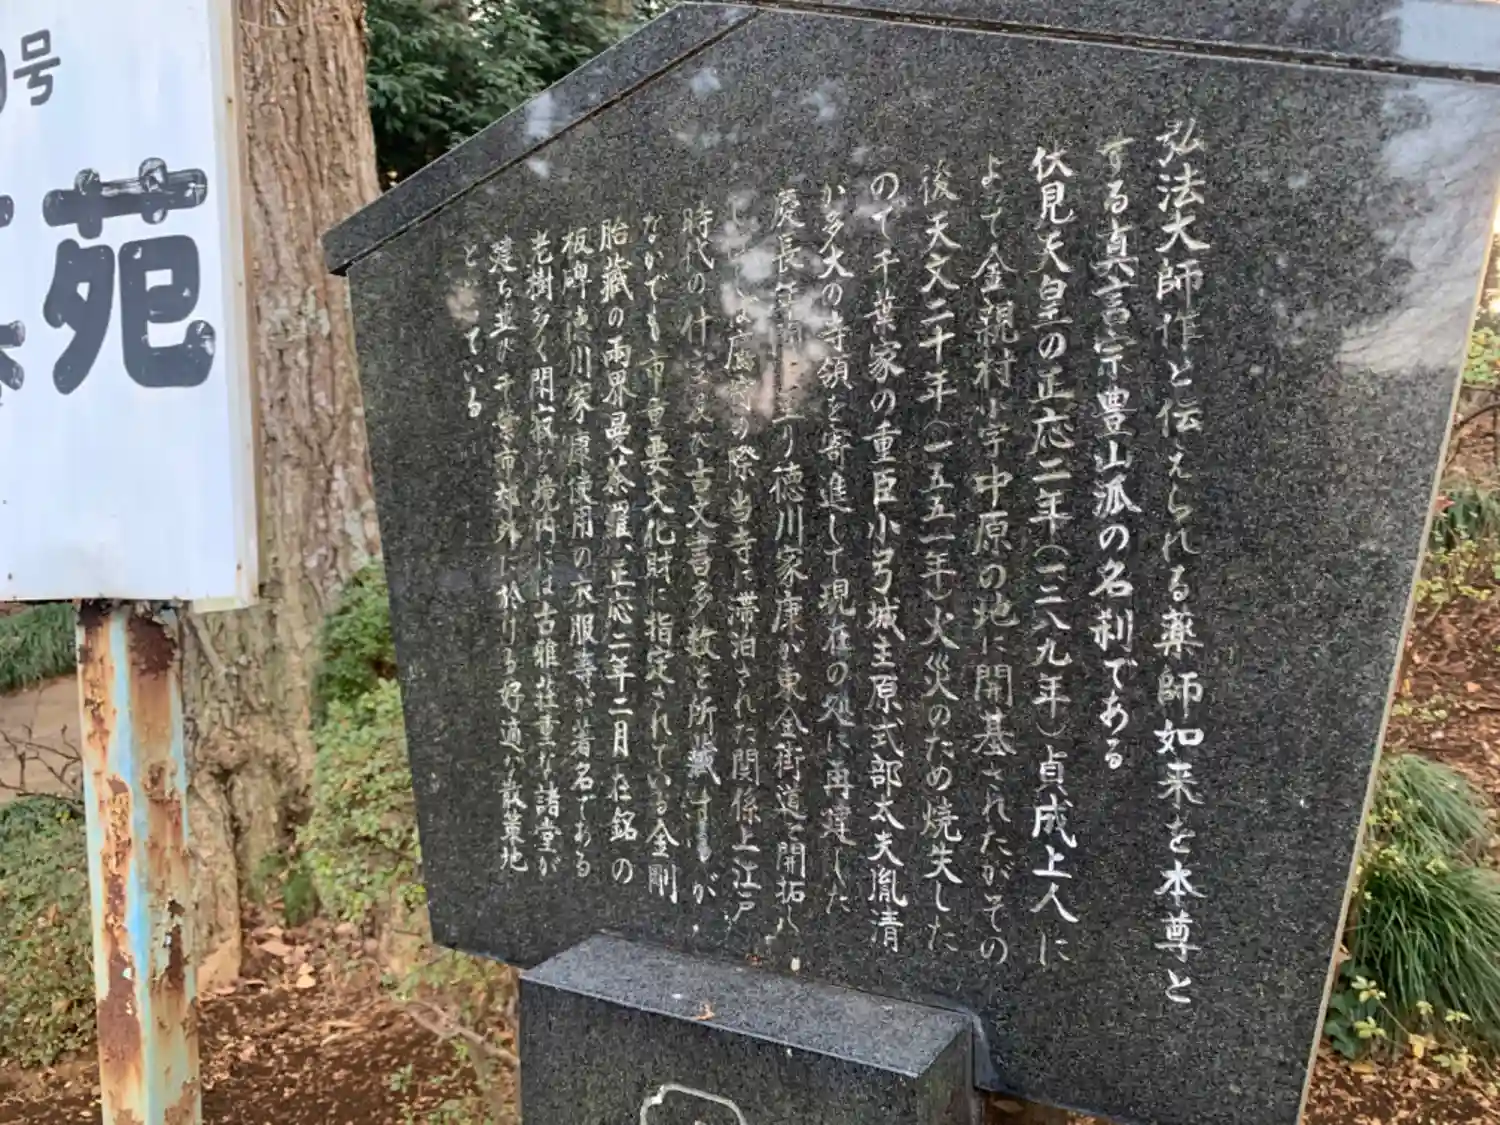 弘法大師作と伝えられる薬師如来を本尊と
する真言宗豊山派の名刹である
伏見天皇の正応二年（一二八九年）貞成上人に
よって金親村小字中原の地に開基されたがその
後天文二十年（一五五一年）火災のため焼失した
ので千葉家の重臣小弓城主原式部太夫胤清
が多大の寺領を寄進して現在の処に再建した
慶長年間に至り徳川家康が東金街道を開拓し
の際当寺に滞泊された関係上江戸
時代の什宝及び古文書多数を所蔵するが
なかでも市重要文化財に指定されている金剛
胎蔵の両界曼荼羅、正応二年二月在銘の
板碑徳川家康使用の衣服等が著名である
老樹多く閑寂な境内には古雅荘重な諸堂が
建ち並び千葉市郊外に於ける好適な散策地
となっている
号
苑